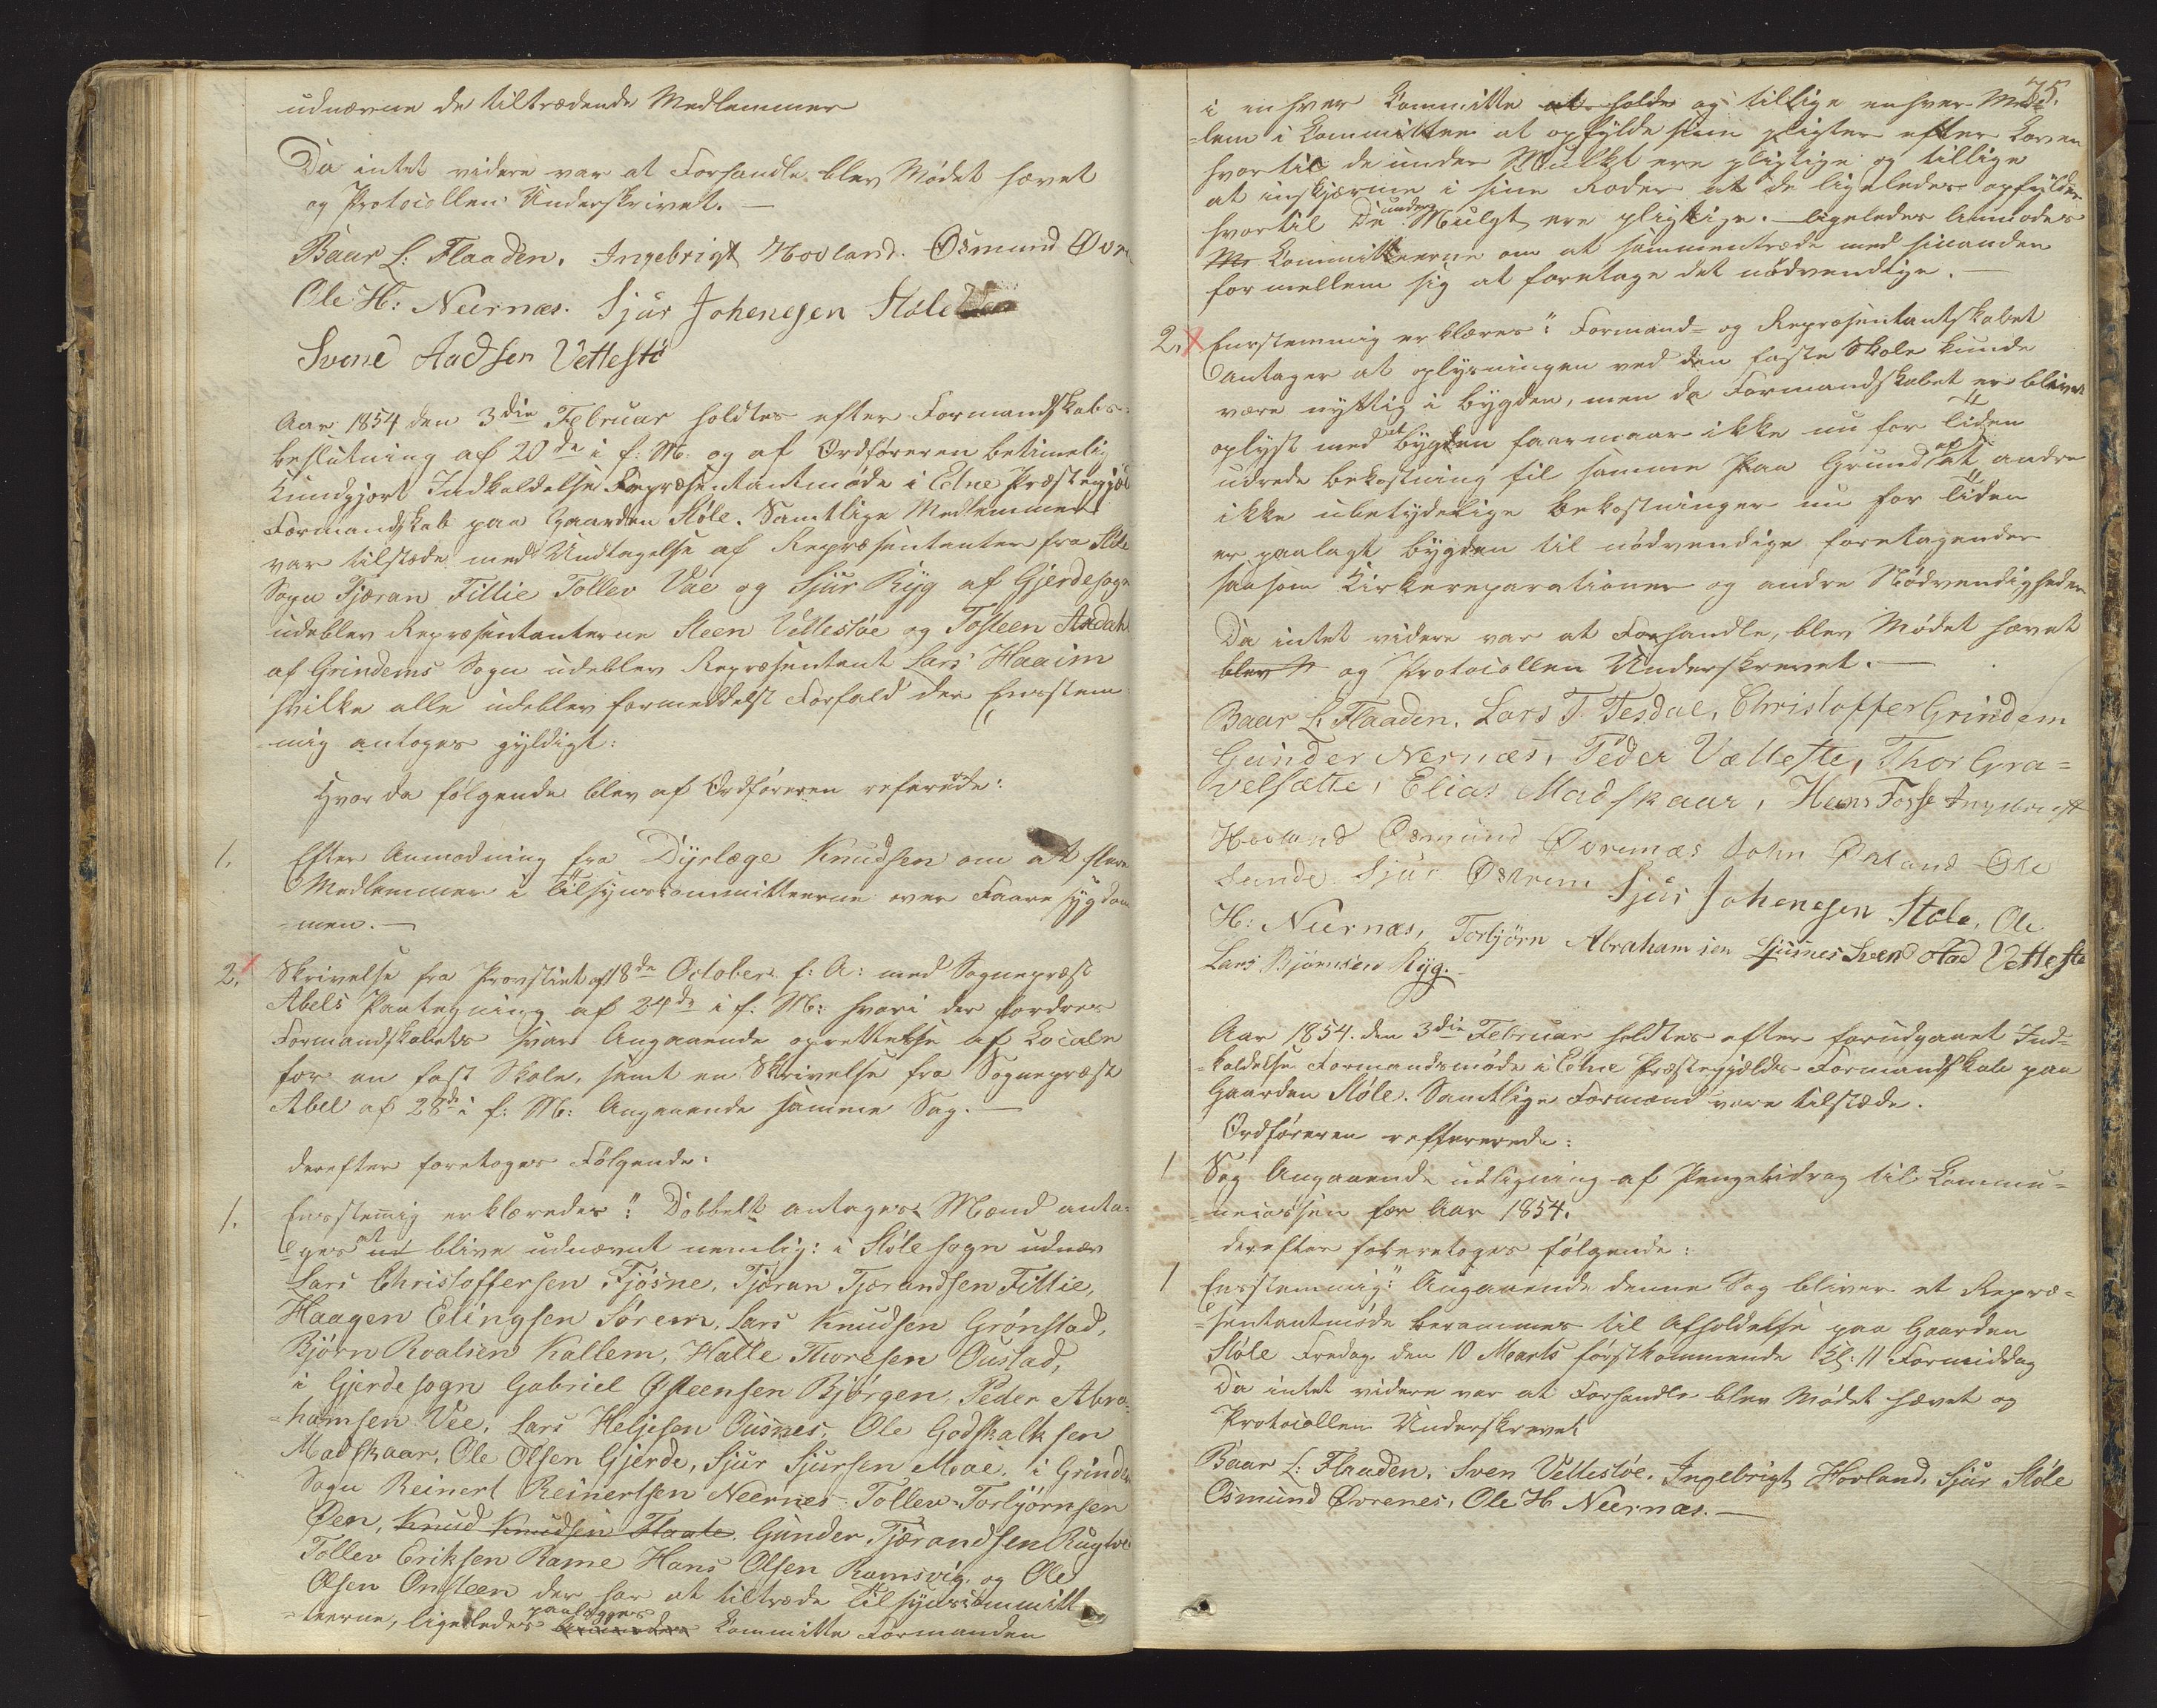 udnævne de tiltrædende Medlemmer
Da intet videre var at Forhandle blev Mødet hævet
og Protocollen Underskrivet. —
Baar L: Flaaden. Ingebrigt Hovland. Osmund Øvre
Ole H: Neernæs. Sjur Johenesen Støle
Svend Aadsen Vettestø
Aar 1854 den 3die Februar holdtes efter Formandskabs-
beslutning af 20de i f: M: og af Ordføreren betimelig
kundgjort Indkaldelse Repræsentantmøde i Etne Præstegjæl
Formandskab paa Gaarden Støle. Samtlige Medlemmer
var tilstede med Undtagelse af Repræsentanter fra Støle
Sogn Tjæran Tillie Tollev Vae og Sjur Ryg af Gjerdesogn
udeblev Repræsentanterne Steen Vettestøe og Tosteen Axdahl
af Grindems Sogn udeblev Repræsentant Lars Haaim
hvilke alle udeblev formeddelst Forfald der Eensstem-
-mig antoges gyldigt:
Hvor da følgende blev af Ordføreren referede:
1. Efter Anmodning fra Dyrlæge Knudsen om at flere
Medlemmer i Tilsynscommitteerne over Faaresygdom
-men. —
2. Skrivelse fra Provstiet af 18de October f: A: med Sognepræst
Abels Paategning af 24de i f: M: hvori der fordres
Formandskabets svar Angaaende oprettelse af Locale
for en fast Skole, samt en Skrivelse fra Sognepræst
Abel af 28de i f: M: Angaaende samme Sag. —
derefter foretoges Følgende:
1. Eensstemig erklæredes: " Dobbelt antages Mænd anta-
ges at blive udnævnt nemlig: i Støle sogn udnæv
Lars Christoffersen Fjøsne, Tjæran Tjerandsen Tillie,
Haagen Elingsen Sørem, Lars Knudsen Grønstad,
Bjørn Roalsen Kallem, Halle Thoresen Oustad,
i Gjerde sogn Gabriel Østeensen Bjørgen, Peder Abra-
-hamsen Vee, Lars Heljesen Ousnes, Ole Godskalksen
Madskaar, Ole Olsen Gjerde, Sjur Sjursen Moae, i Grindem
Sogn Reinert Reinertsen Neernes Tollev Torbjørnsen
Øen, Knud Knudsen Flaate, Gunder Tjærandsen Rugtve
Tollev Eriksen Rame Hans Olsen Ramsvig, og Ole
Olsen Ønsteen der har at tiltræde Tilsynscommitt
-teerne, ligeledes paalægges Committe Formanden
75.
i enhver Committe at holde og tillige enhver Med-
-lem i Committeen at opfylde sine pligter efter Loven
hvortil de under Mulkt ere pligtige og tillige
at indskjærme i sine Roder at de ligeledes opfylder
hvortil De under Mulgt ere pligtige. ligeledes Anmodes
Committeerne om at sammentræde med hinanden
for mellem sig at foretage det nødvendige. —
2. Eensstemmig erklæres: " Formand- og Repræsentantskabet
antager at oplysningen ved den faste Skole kunde
være nyttig i bygden, men da Formandskabet er bleven
oplyst med at bygden formaar ikke nu for Tiden
udrede bekostning til samme paa Grund af at andre
ikke ubetydelige bekostninger nu for Tiden
er paalagt bygden til nødvendige foretagender
saasom Kirkereparationer og andre Nødvendigheder
Da intet videre var at Forhandle, blev Mødet hævet
blev og Protocollen Underskrevet. —
Baar L: Flaaden, Lars T. Tesdal, Christoffer Grindem
Gunder Nernæs, Peder Vælleste, Thor Gra=
velsætte, Elias Madskaar, Hans Fosse Ingebrigt
Hovland Osmund Øvrenæs John Østand Ole
Sunde Sjur Østrem Sjur Johenesen Støle, Ole
H: Neernæs, Torbjørn Abrahamsen Ljusnes Svend Aad Vetteste
Lars Bjørnsen Ryg. —
Aar 1854. den 3die Februar holdtes efter forudgaaet Ind-
-kaldelse Formandsmøde i Etne Præstegjælds Formandskab paa
Gaarden Støle. Samtlige Formænd vare tilstede.
Ordføreren reffererede:
1 Sag Angaaende udligning af Pengebidrag til Commu-
necassen for Aar 1854.
derefter foretoges følgende:
1 Eensstemmig: " Angaaende denne Sag bliver et Repræ-
-sentantmøde berammes til Afholdelse paa Gaarden
Støle Fredag den 10 Marts førstkommende Kl: 11 Formiddag
Da intet videre var at Forhandle blev Mødet hævet og
Protocollen Underskrevet
Baar L: Flaaden, Sven Vettestøe, Ingebrigt Hovland, Sjur Støle
Osmund Øvrenes, Ole H Neernæs. —